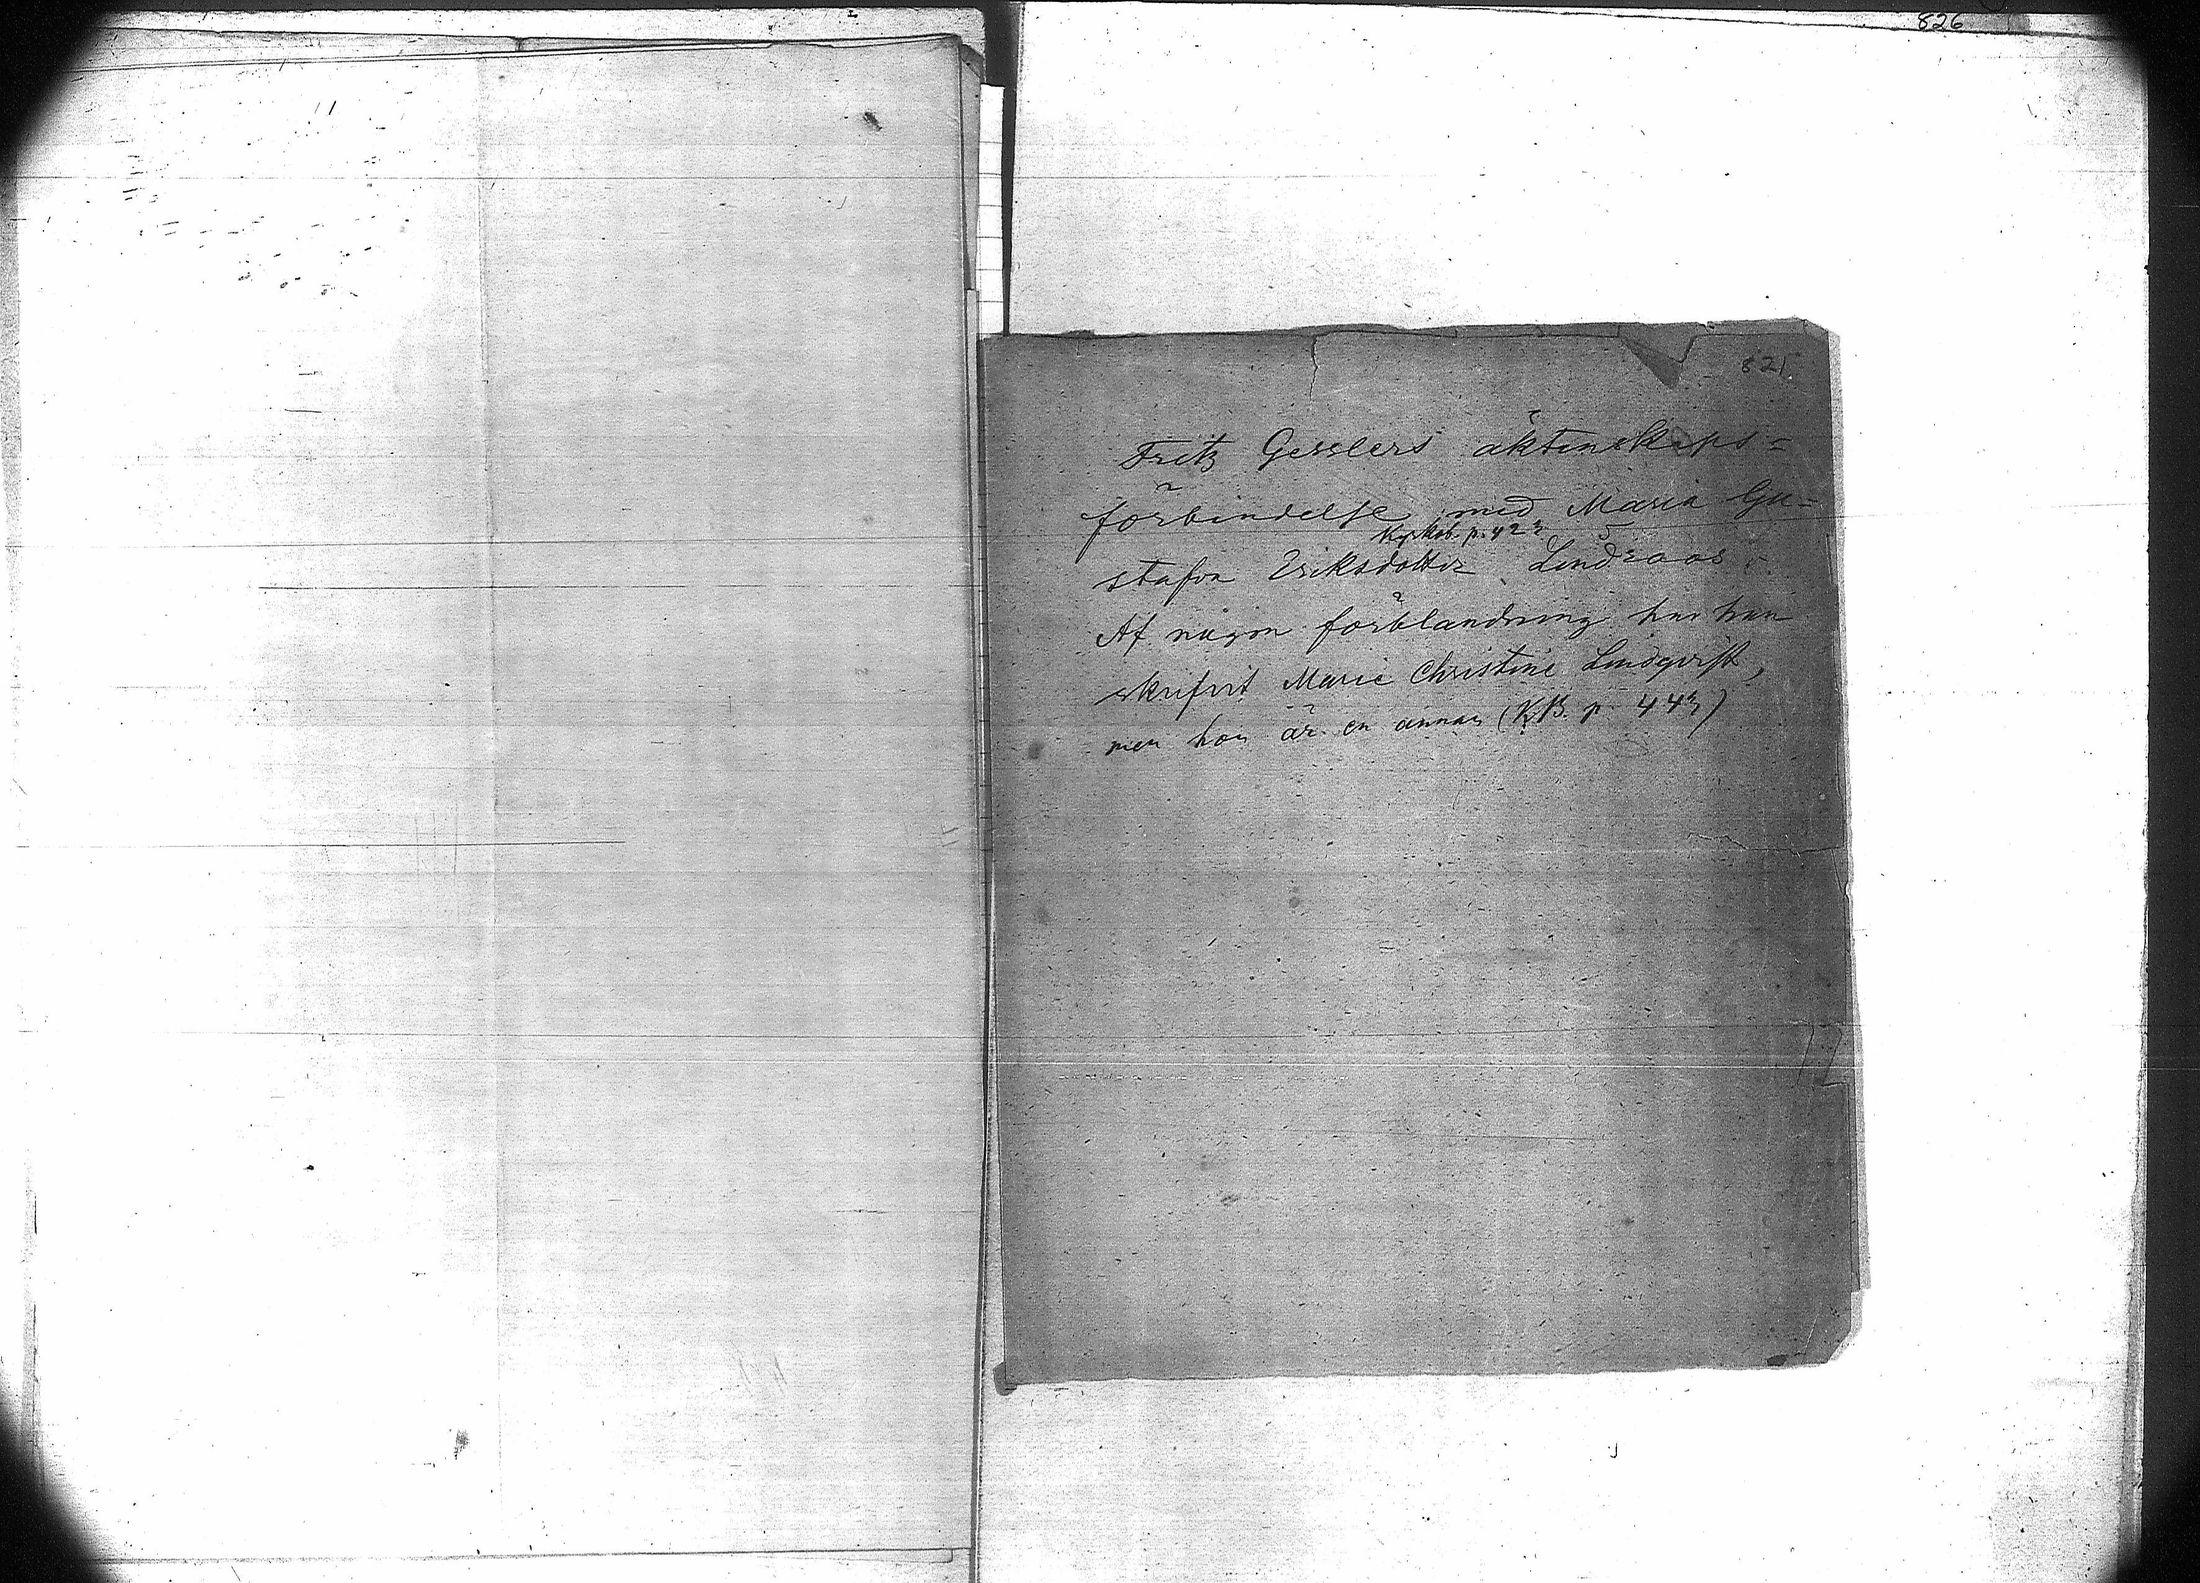 826
825
Fritz Gesslers äktenskaps=
förbindelse med Maria Gu=
Kyrkob. p. 423
stafva Eriksdotter Lindroos.
Af någon förblandning har han
skrifvit Marie Christine Lindqvist,
men hon är en annan (KB. p. 443)